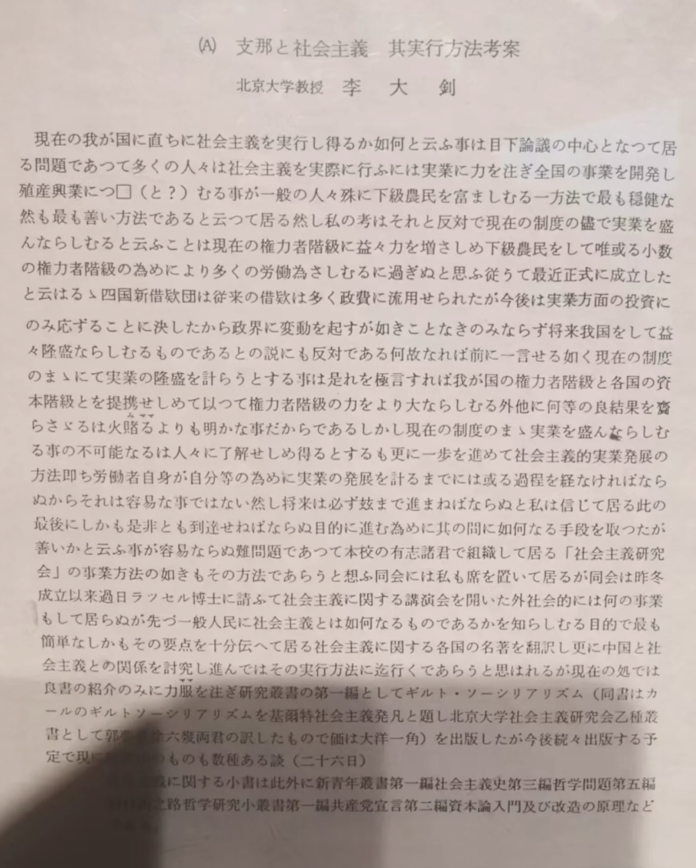 (A) 支那と社会主義 其実行方法考案
北京大学教授 李大釗
現在の我が国に直ちに社会主義を実行し得るか如何と云ふ事は目下論議の中心となつて居
る問題であつて多くの人々は社会主義を実際に行ふには実業に力を注ぎ全国の事業を開発し
殖産興業につ□(と?)むる事が一般の人々殊に下級農民を富ましむる一方法で最も穏健な
然も最も善い方法であると云つて居る然し私の考はそれと反対で現在の制度の儘で実業を盛
んならしむると云ふことは現在の権力者階級に益々力を増さしめ下級農民をして唯或る小数
の権力者階級の為めにより多くの労働為さしむるに過ぎぬと思ふ従うて最近正式に成立した
と云はるゝ四国新借欵団は従来の借欵は多く政費に流用せられたが今後は実業方面の投資に
のみ応ずることに決したから政界に変動を起すが如きことなきのみならず将来我国をして益
々隆盛ならしむるものであるとの説にも反対である何故なれば前に一言せる如く現在の制度
のまゝにて実業の隆盛を計らうとする事は是れを極言すれば我が国の権力者階級と各国の資
本階級とを提携せしめて以つて権力者階級の力をより大ならしむる外他に何等の良結果を齎
らさゞるは火賭るよりも明かな事だからであるしかし現在の制度のまゝ実業を盛んならしむ
る事の不可能なるは人々に了解せしめ得るとするも更に一歩を進めて社会主義的実業発展の
方法即ち労働者自身が自分等の為めに実業の発展を計るまでには或る過程を経なければなら
ぬからそれは容易な事ではない然し将来は必ず玆まで進まねばならぬと私は信じて居る此の
最後にしかも是非とも到達せねばならぬ目的に進む為めに其の間に如何なる手段を取つたが
善いかと云ふ事が容易ならぬ難問題であつて本校の有志諸君で組織して居る「社会主義研究
会」の事業方法の如きもその方法であらうと想ふ同会には私も席を置いて居るが同会は昨冬
成立以来過日ラツセル博士に請ふて社会主義に関する講演会を開いた外社会的には何の事業
もして居らぬが先づ一般人民に社会主義とは如何なるものであるかを知らしむる目的で最も
簡単なしかもその要点を十分伝へて居る社会主義に関する各国の名著を翻訳し更に中国と社
会主義との関係を討究し進んではその実行方法に迄行くであらうと思はれるが現在の処では
良書の紹介のみに力服を注ぎ研究叢書の第一編としてギルト・ソーシリアリズム(同書はカ
ールのギルトソーシリアリズムを基爾特社会主義発凡と題し北京大学社会主義研究会乙種叢
書として郭 六幾両君の訳したもので価は大洋一角)を出版したが今後続々出版する予
定で現に のものも数種ある談(二十六日)
に関する小書は此外に新青年叢書第一編社会主義史第三編哲学問題第五編
之路哲学研究小叢書第一編共産党宣言第二編資本論入門及び改造の原理など